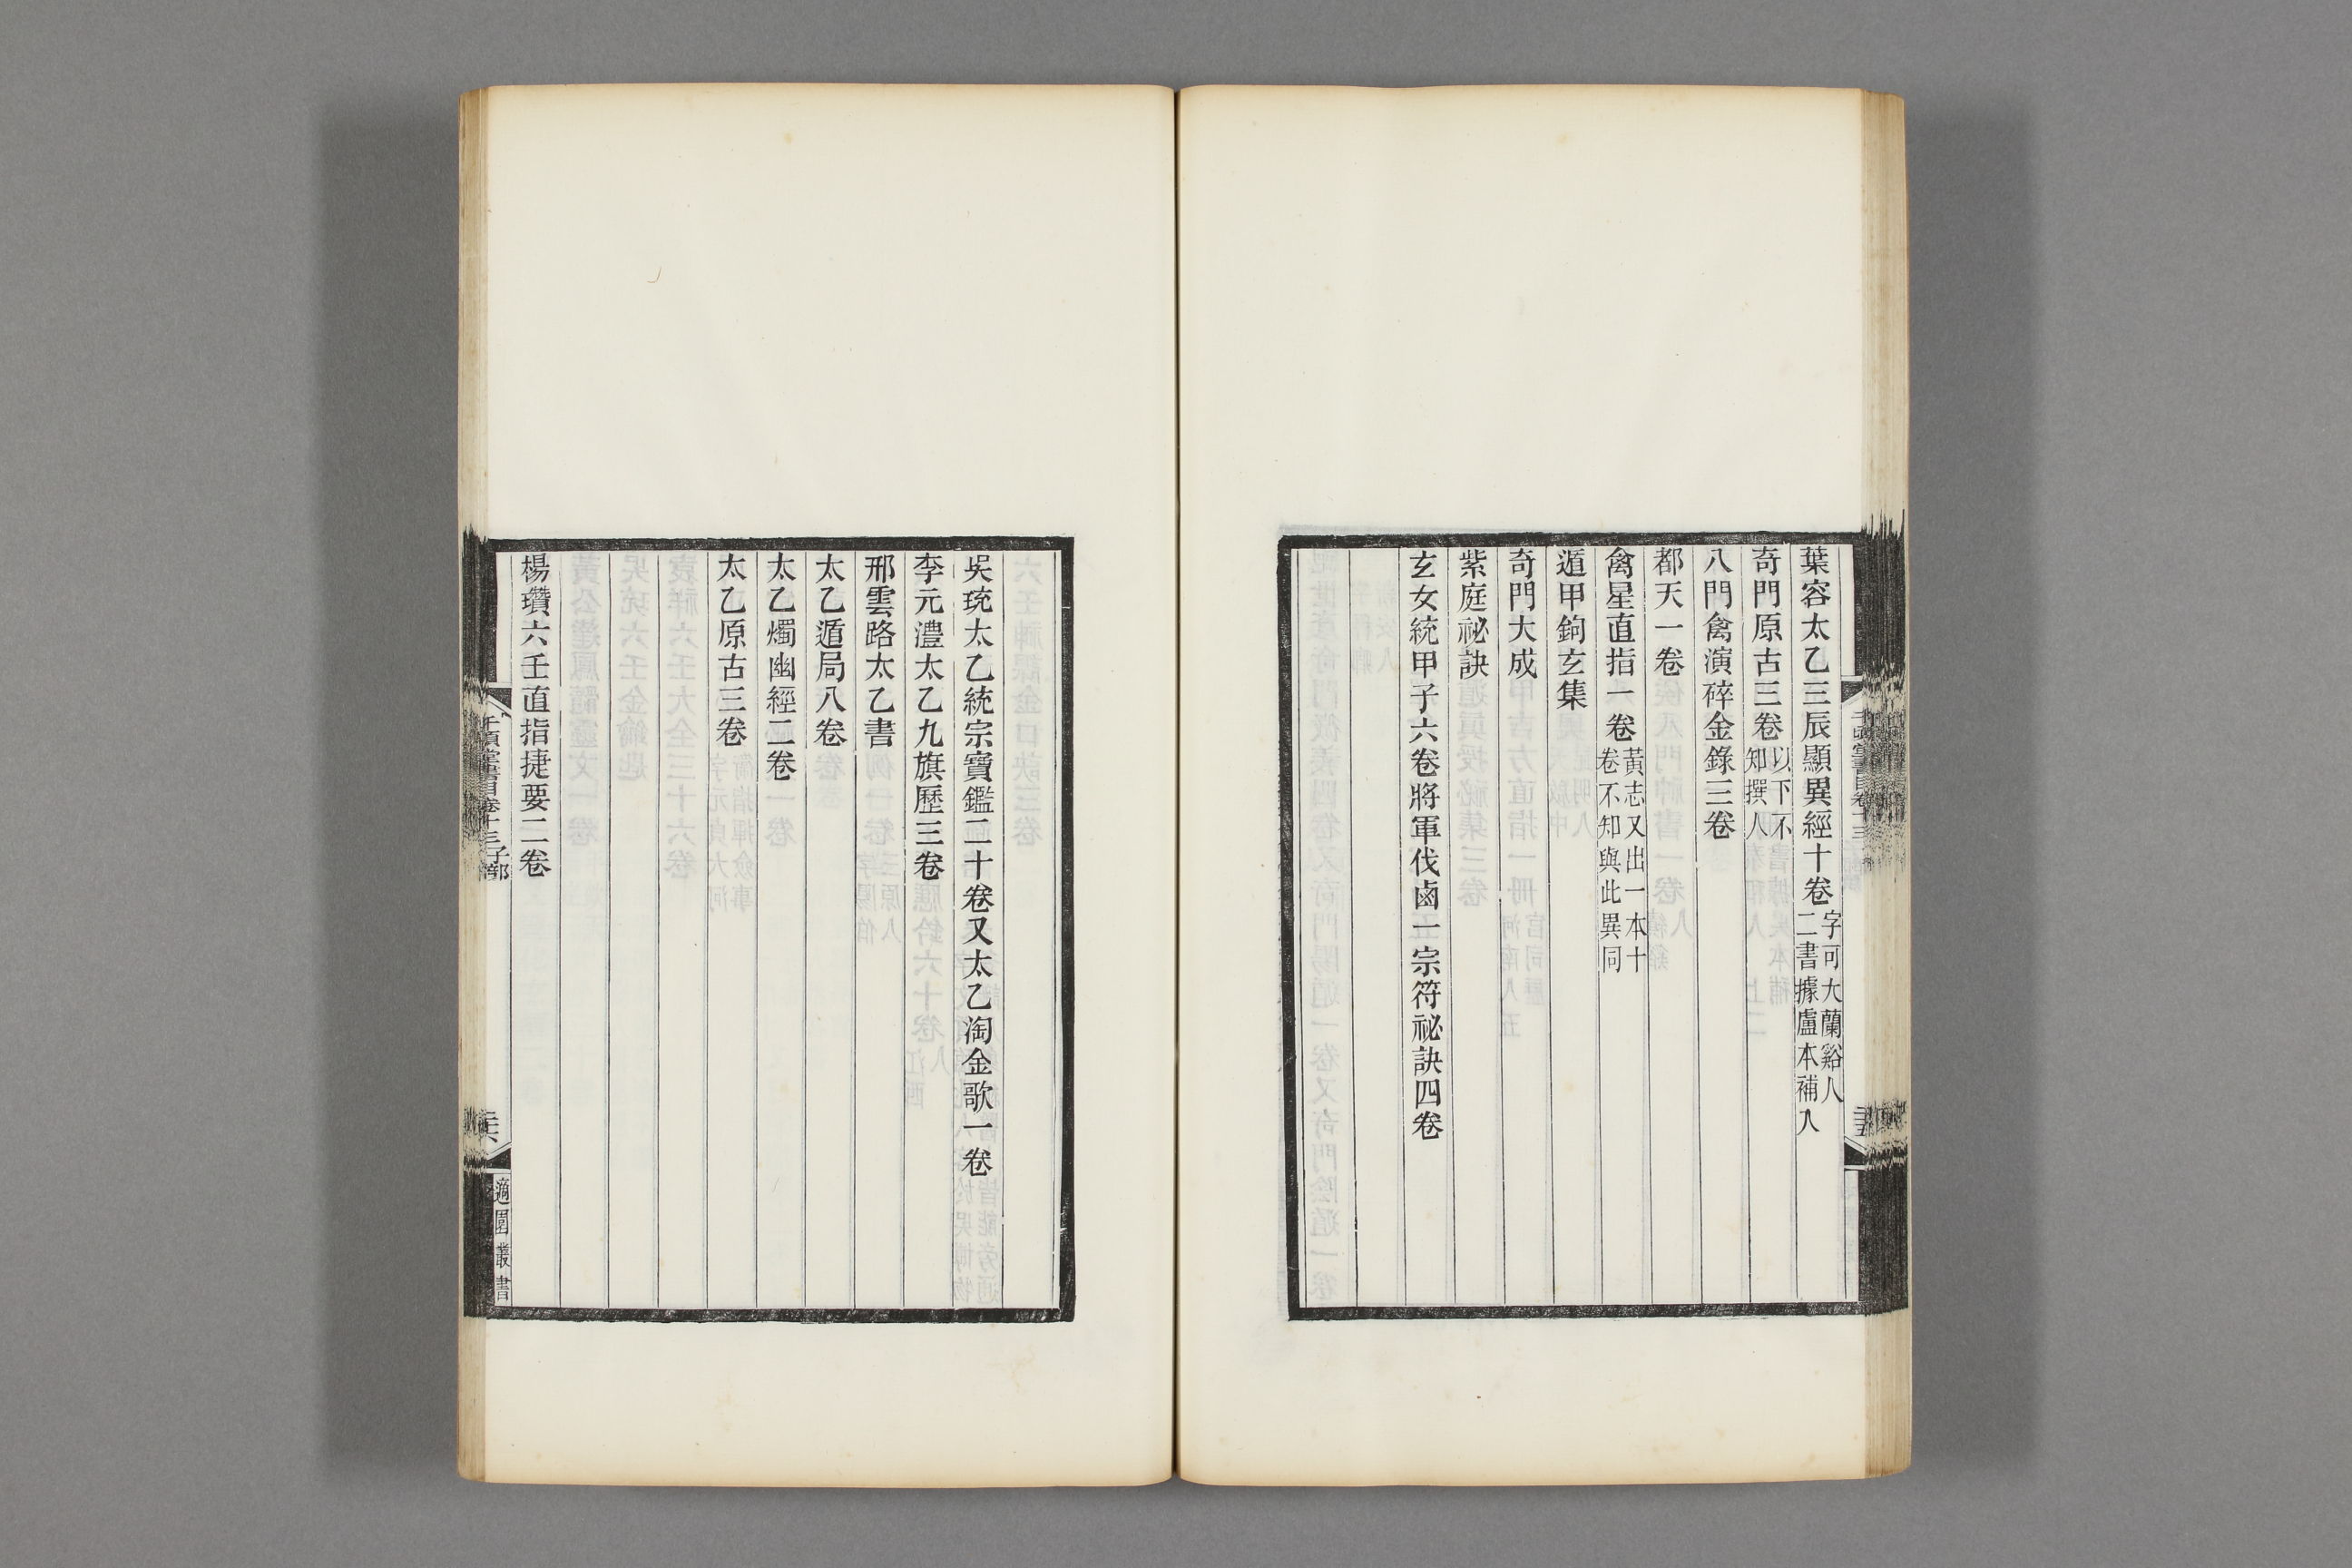 葉容太乙三辰顯異經十卷字可大蘭谿人二書據盧本補入
奇門原古三卷以下不知撰人
八門禽演碎金錄三卷
都天一卷
禽星直指一卷黃志又出一本十卷不知與此異同
遁甲鉤玄集
奇門大成
紫庭祕訣
玄女統甲子六卷將軍伐鹵一宗符祕訣四卷
吳珫太乙統宗寶鑑二十卷又太乙淘金歌一卷
李元灃太乙九旗歷三卷
邢雲路太乙書
太乙遁局八卷
太乙燭幽經二卷
太乙原古三卷
楊瓚六壬直指捷要二卷
千頃堂書目卷十三子部
適園叢書